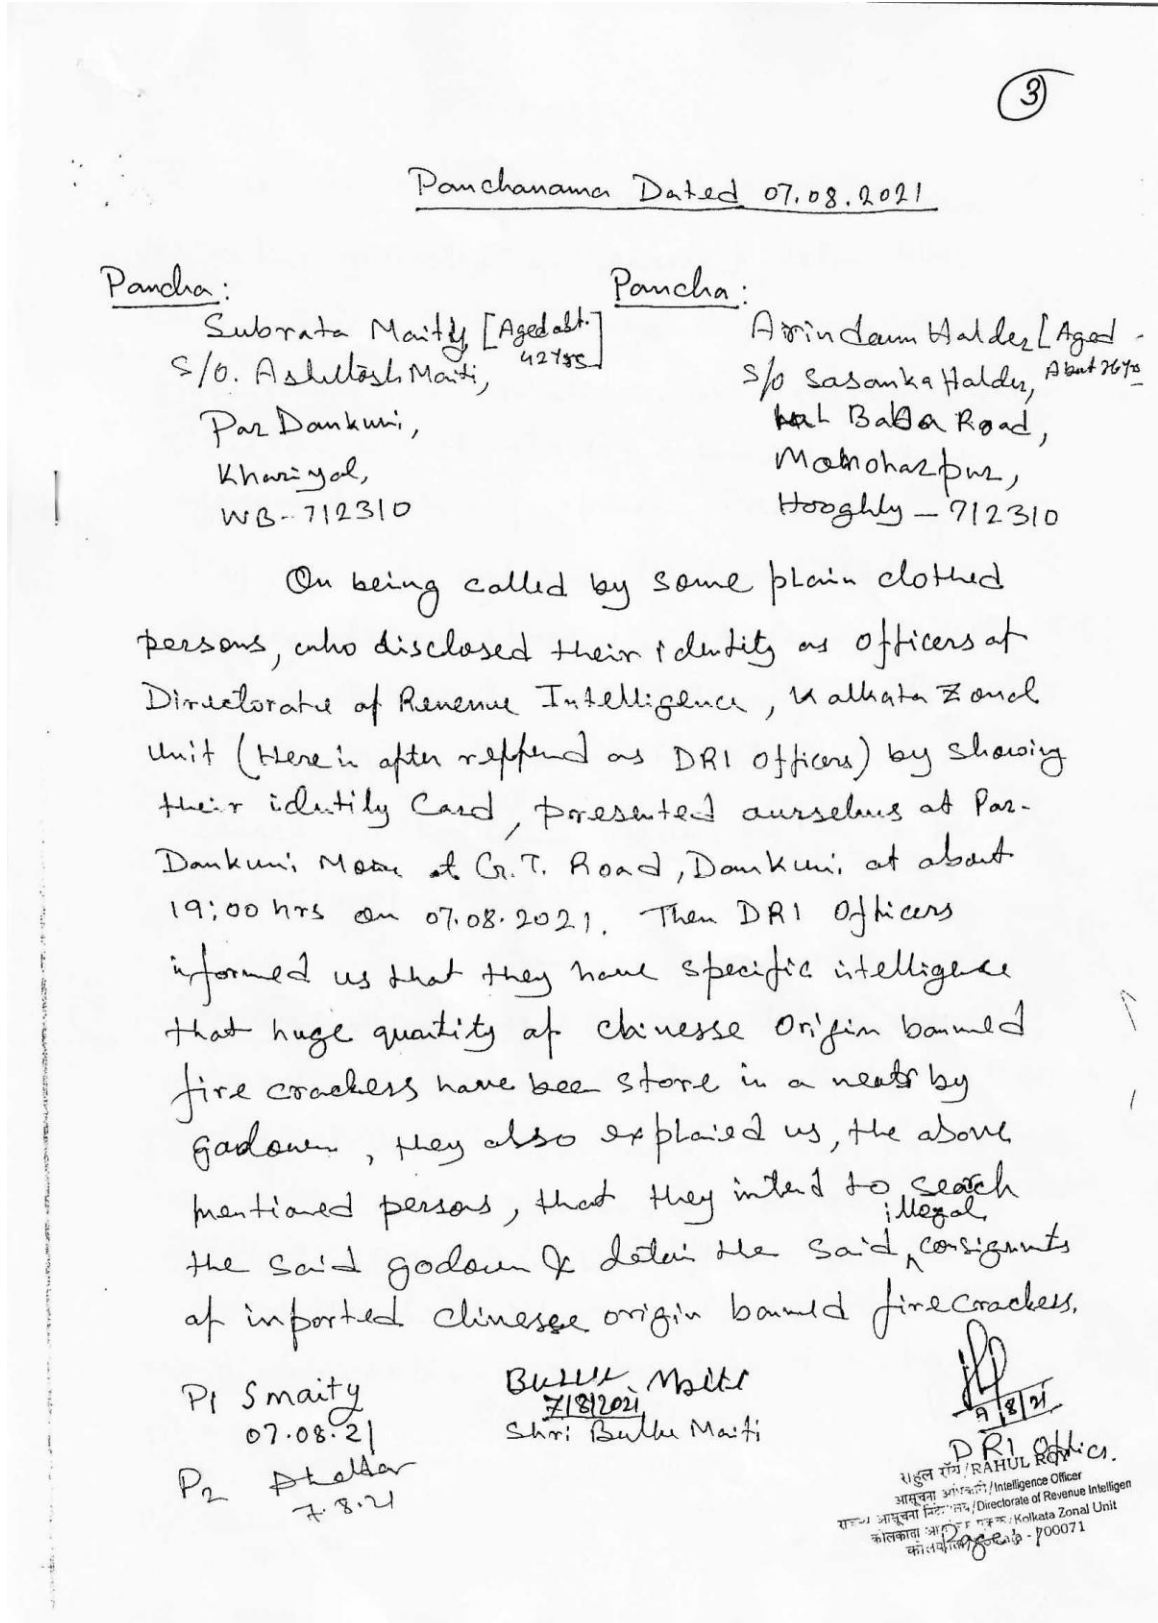 3
Panchanama Dated 07.08.2021
Pancha:
Subrata Maity [Aged abt. 42 Yrs]
S/O. Ashutosh Maiti,
Par Dankuni,
Khariyal,
WB-712310
Pancha:
Arindam Halder [Aged About 26 Yrs
S/o Sasanka Halder,
Baba Road,
Manoharpur,
Hooghly - 712310
On being called by some plain clothed
persons, who disclosed their identity as officers of
Directorate of Revenue Intelligence, Kolkata Zonal
Unit (Here in after reffered as DRI officers) by showing
their identity Card, presented ourselves at Par-
Dankuni More at G.T. Road, Dankuni at about
19:00 hrs on 07.08.2021. Then DRI Officers
informed us that they have specific intelligence
that huge quantity of chinesse Origin banned
fire crackers have bee store in a near by
godown, they also explaied us, the above
mentioned persons, that they intend to search
the said godown & detain the said illegal consignments
of imported chinesse origin banned firecrackers.
P1 Smaity
07.08.21
P2
7.8.21
7/8/2021
Shri Bulu Maiti
7/8/21
DRI Officer.
राहुल रॉय/RAHUL ROY
आसूचना अधिकारी/Intelligence Officer
आसूचना /Directorate of Revenue Intelligen
कोलकाता /Kolkata Zonal Unit
- 700071
Page